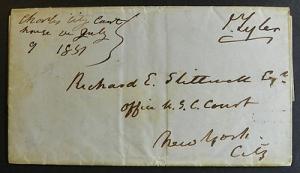 Charles City Court
house Va July
9 1851
J. Tyler
Richard E. Stillwell Esq
office U.S.C. Court
New York
City